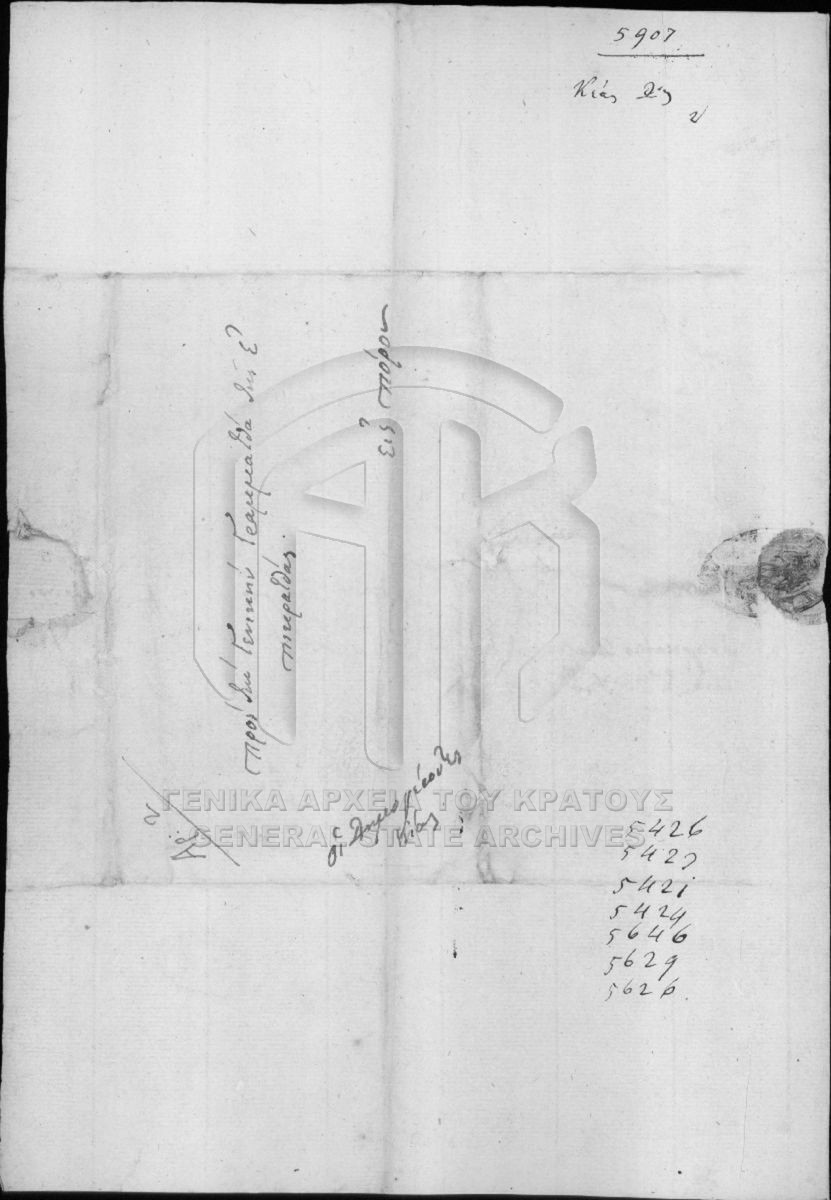 5907
Κέας
Πρὸς τὴν Γενικὴν Γραμματεία τῆς Ἐ
πικρατείας.
εἰς Πόρον
οἱ Δημογέροντες
Κέας
5426
5427
5421
5424
5646
5629
5626
ΓΕΝΙΚΑ ΑΡΧΕΙΑ ΤΟΥ ΚΡΑΤΟΥΣ
GENERAL STATE ARCHIVES